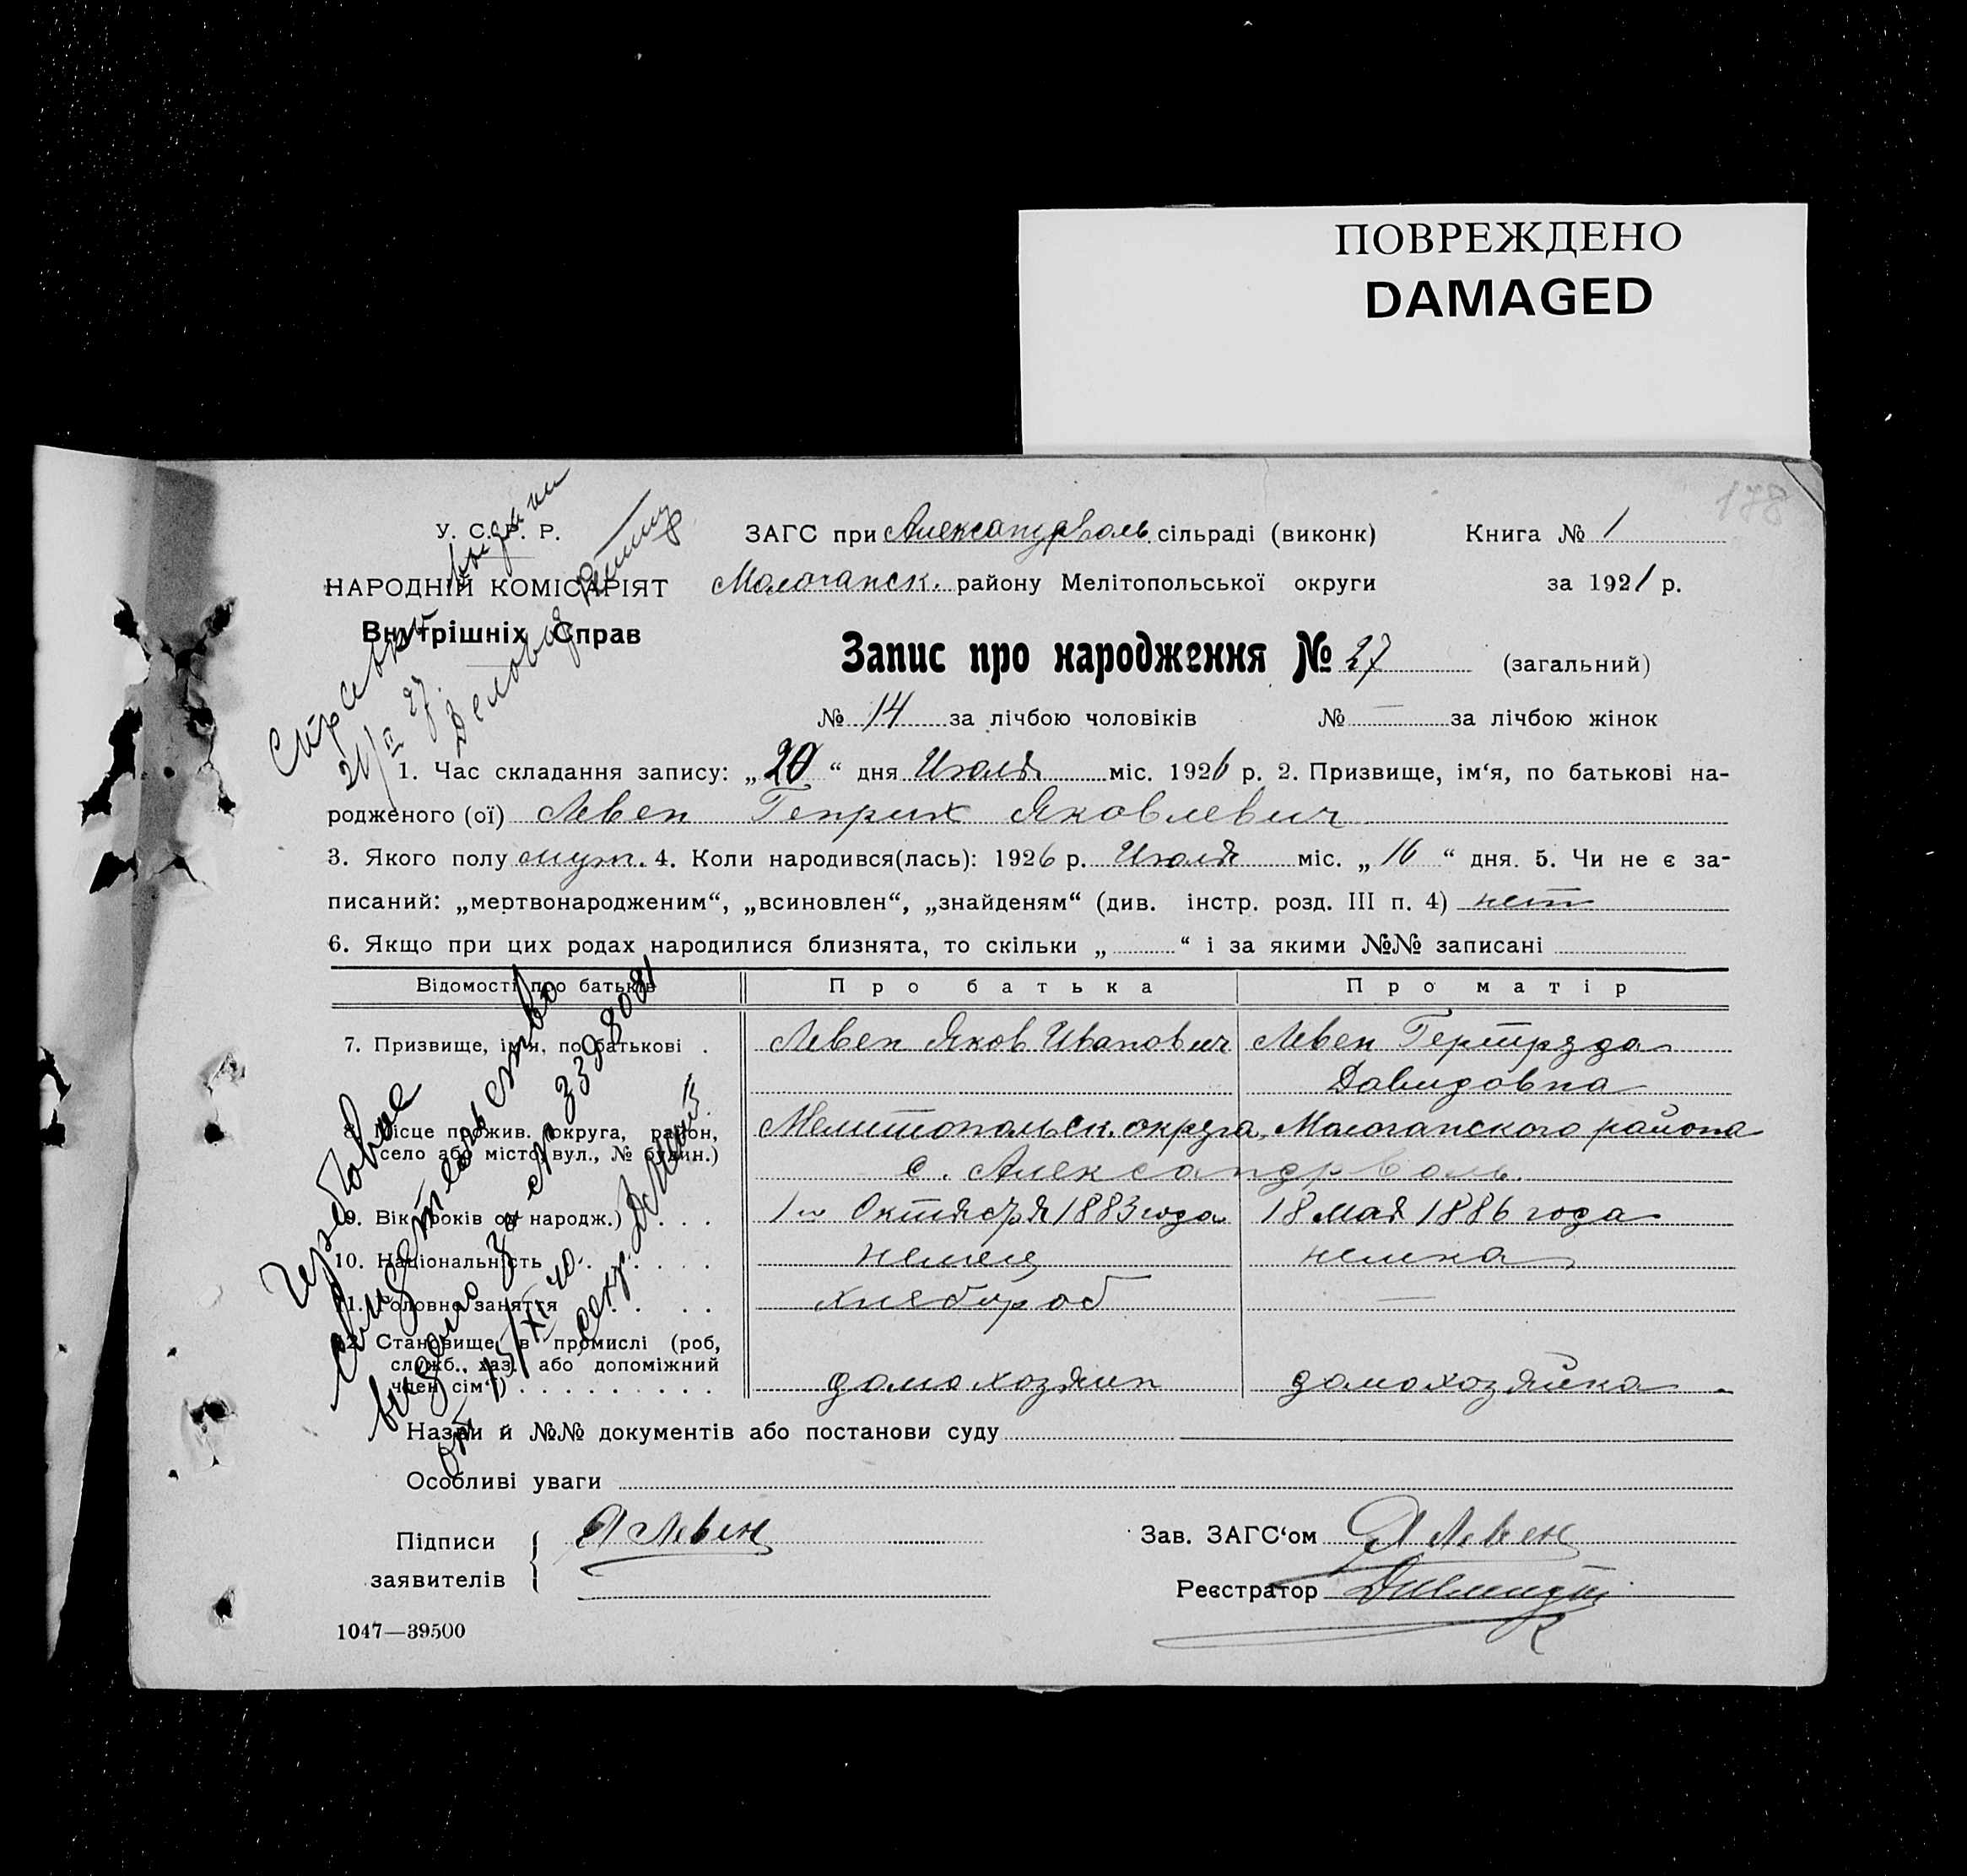 ПОВРЕЖДЕНО
DAMAGED
178
У. С. Р. Р.
НАРОДНІЙ КОМІСАРІЯТ
Внутрішніх Справ
ЗАГС при Александрволь. сільраді (виконк) Книга № 1
Молочанск. району Мелітопольської округи за 1921 р.
Запис про народження № 27 (загальний)
№ 14 за лічбою чоловіків № — за лічбою жінок
Справку выдали
21/II 27.
1. Час складання запису: „20“ дня Июля міс. 1926 р. 2. Призвище, ім‘я, по батькові на-
родженого (ої) Левен Генрих Яковлевич
3. Якого полу муж. 4. Коли народився(лась): 1926 р. Июля міс. „16“ дня. 5. Чи не є за-
писаний: „мертвонародженим“, „всиновлен“, „знайденям“ (див. інстр. розд. III п. 4) нет
6. Якщо при цих родах народилися близнята, то скільки „ “ і за якими №№ записані
Відомості про батьків Про батька Про матір
7. Призвище, ім‘я, по батькові . Левен Яков Иванович Левен Гертруда
Давидовна
8. Місце прожив. округа, район, Мелитопольск. округа, Молочанского района
село або місто, вул., № будин.) с. Александрволь.
9. Вік (років од народж.) . . . 1го Октября 1883 года 18 мая 1886 года
10. Національність . . . . . немец немка
11. Головне заняття . . . . хлебороб —
12. Становище в промислі (роб,
служб., хаз. або допоміжний
член сім‘ї) . . . . . . . . . домохозяин домохозяйка
Гербовое
свидетельство
выдано за № 3398081
от 15/XI 40.
секр.
Назви й №№ документів або постанови суду
Особливі уваги
Підписи
заявителів
Я Левен
Зав. ЗАГС‘ом Я Левен
Реєстратор
1047—39500